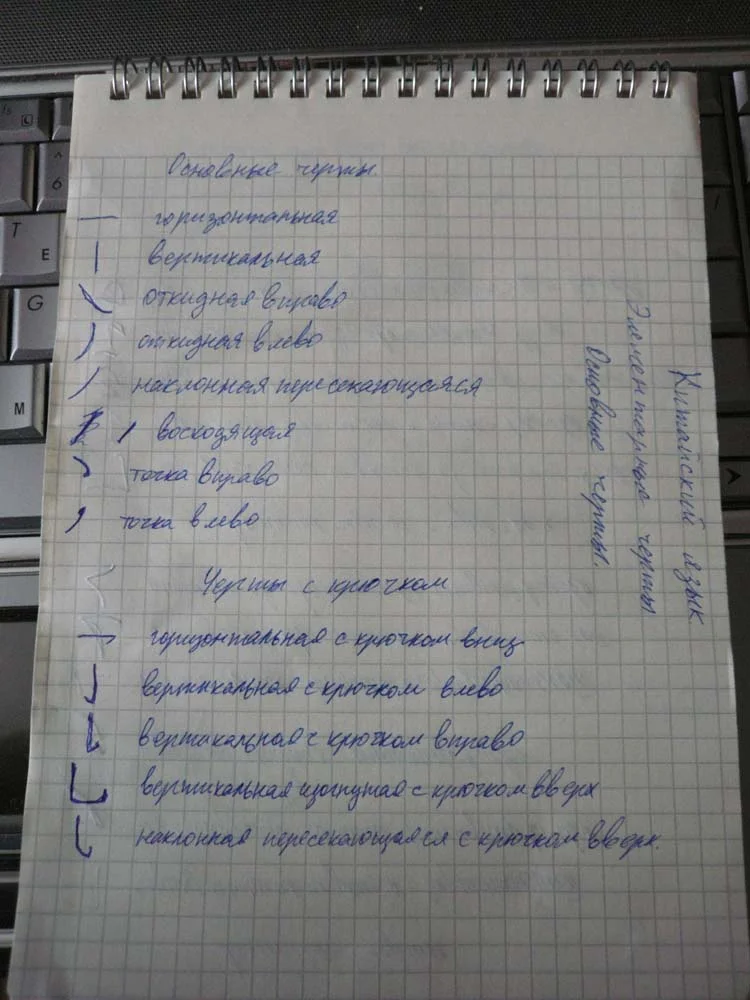 Основные черты.
горизонтальная
вертикальная
откидная вправо
откидная влево
наклонная пересекающаяся
восходящая
точка вправо
точка влево
Черты с крючком
горизонтальная с крючком вниз
вертикальная с крючком влево
вертикальная с крючком вправо
вертикальная изогнутая с крючком вверх
наклонная пересекающаяся с крючком вверх.
Китайский язык
Элементарные черты
Основные черты.
T
E
G
M
6